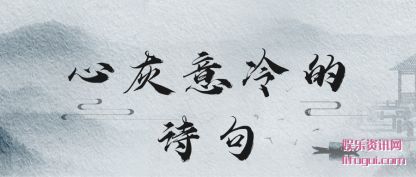 心灰意冷的
诗句
娱乐资讯网
lifugui.com